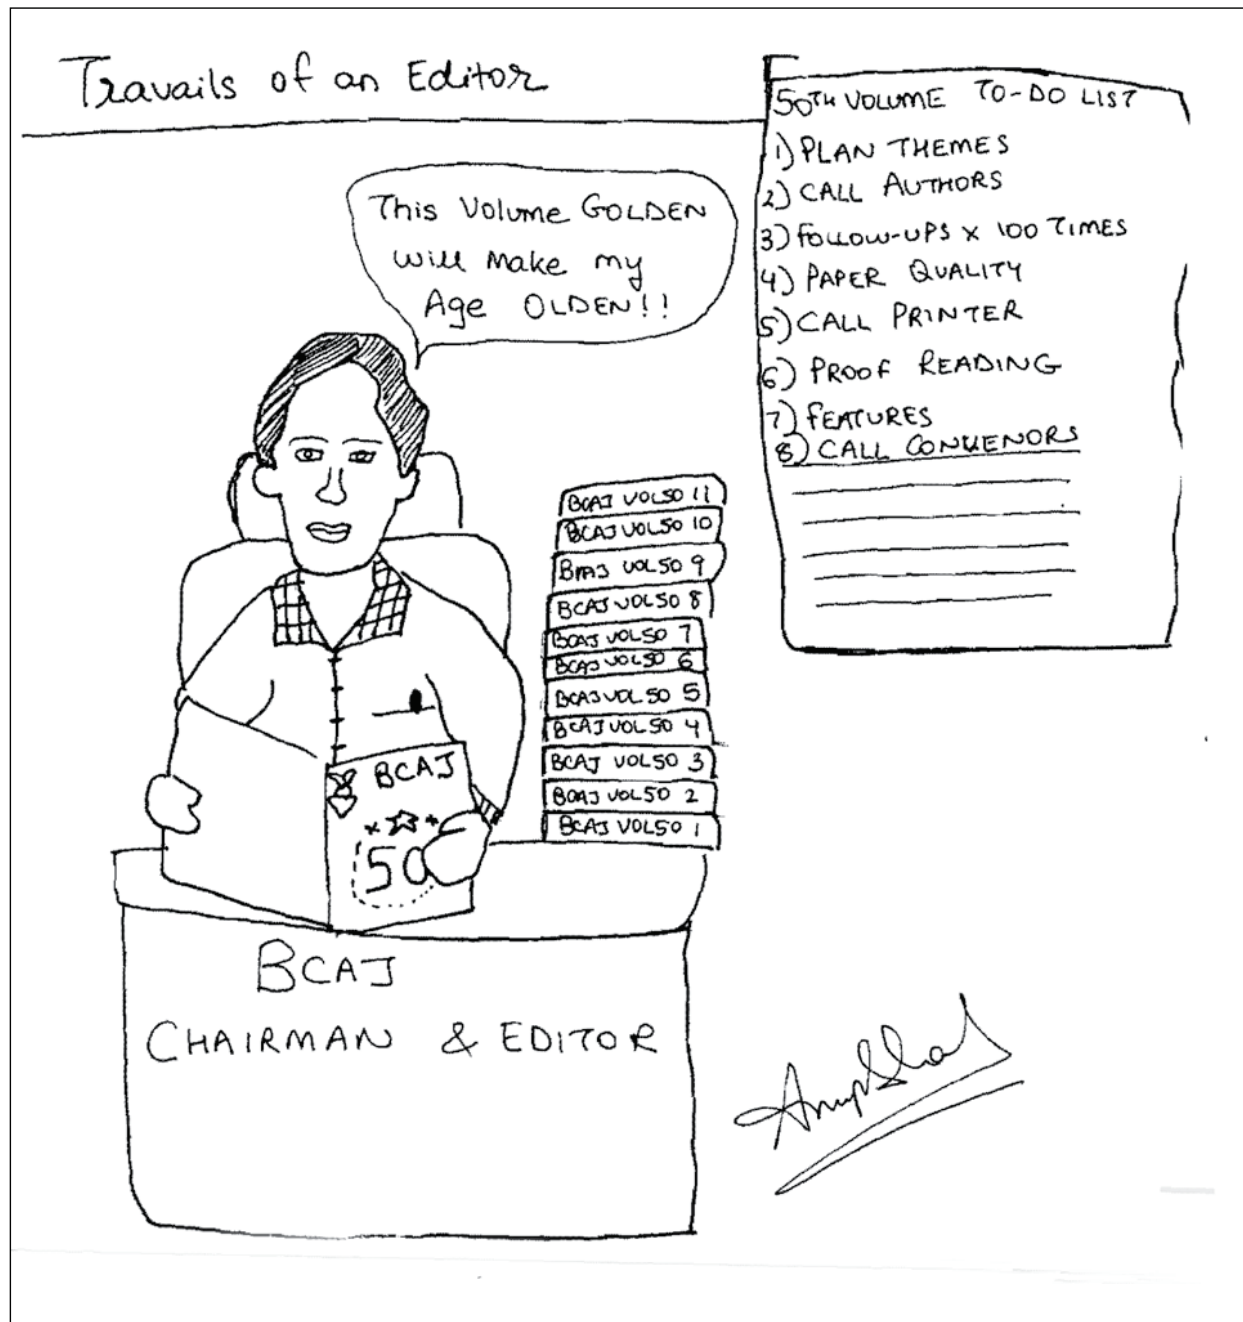 Travails of an Editor
50TH VOLUME TO-DO LIST
1) PLAN THEMES
2) CALL AUTHORS
3) FOLLOW-UPS x 100 TIMES
4) PAPER QUALITY
5) CALL PRINTER
6) PROOF READING
7) FEATURES
8) CALL CONVENORS
This Volume GOLDEN
will make my
Age OLDEN!!
BCAJ VOL50 11
BCAJ VOL50 10
BCAJ VOL50 9
BCAJ VOL50 8
BCAJ VOL50 7
BCAJ VOL50 6
BCAJ VOL50 5
BCAJ VOL50 4
BCAJ VOL50 3
BCAJ VOL50 2
BCAJ VOL50 1
BCAJ
50
BCAJ
CHAIRMAN & EDITOR